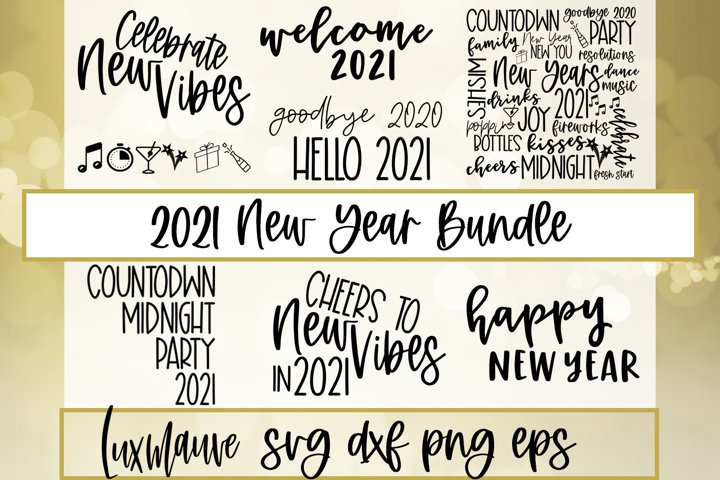 Celebrate
New Vibes
welcome
2021
goodbye 2020
HELLO 2021
COUNTODWN goodbye 2020
family New Year PARTY
NEW YOU resolutions
WISHES New Years dance
music
drinks JOY 2021
poppin fireworks celebrate
BOTTLES kisses
cheers MIDNIGHT fresh start
2021 New Year Bundle
COUNTODWN
MIDNIGHT
PARTY
2021
CHEERS TO
New Vibes
IN 2021
happy
NEW YEAR
LuxMauve svg dxf png eps